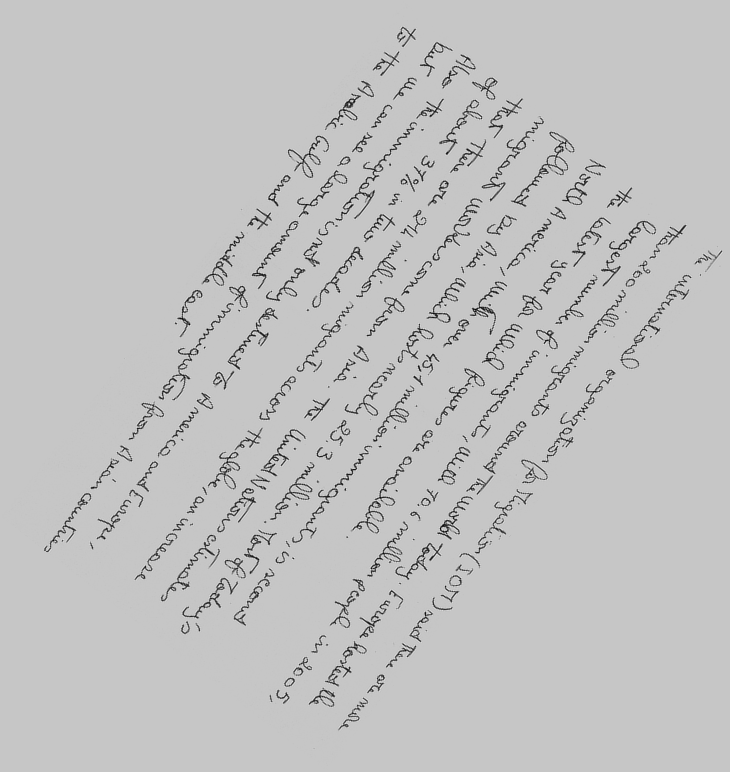 The international organization for Migration (IOM) said there are more
than 200 million migrants around the world today. Europe hosted the
largest number of immigrants, with 70 6 million people in 2005,
the latest year for which figures are available.
North America, with over 45,1 million immigrants, is second
followed by Asia, which hosts nearly 25.3 million. Most of today's
migrant workers come from Asia. The United Nations estimates
that there are 214 million migrants across the globe, an increase
of about 37% in two decades.
Also the immigration is not only destined to America and Europe,
but we can see a large amount of immigration from Asian countries
to the Arabic Gulf and the middle east.